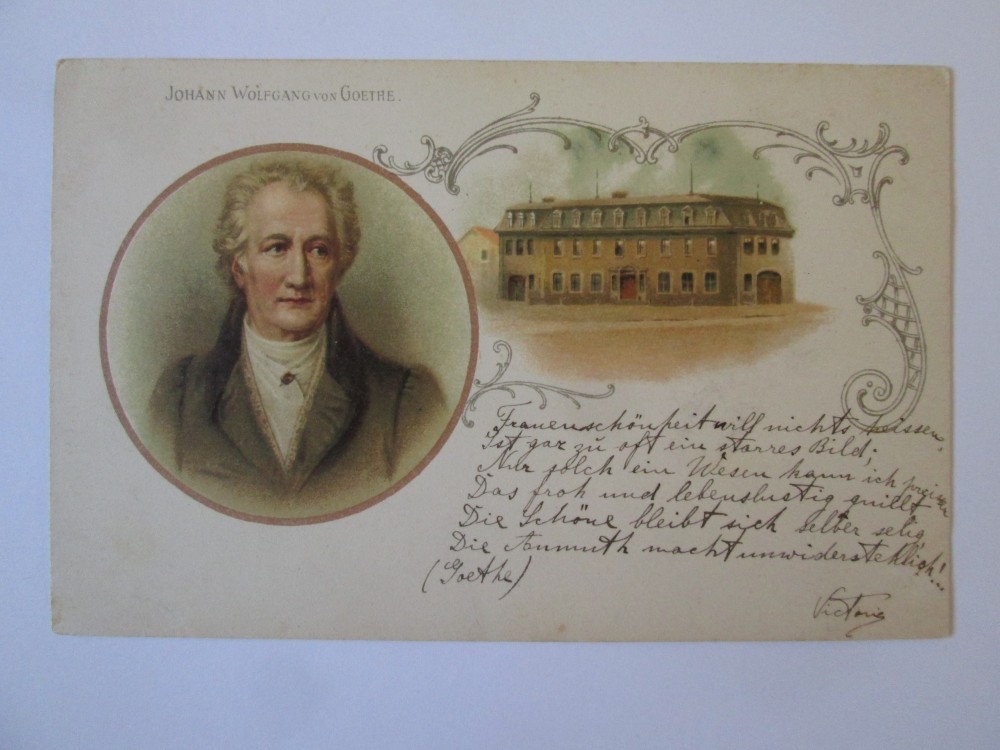 JOHANN WOLFGANG VON GOETHE.
Frauenschönheit will nichts heissen,
Ist gar zu oft ein starres Bild;
Nur solch ein Wesen kann ich preisen
Das froh und lebenslustig quillt
Die Schöne bleibt sich selber selig
Die Anmuth macht unwiderstehlich!...
(Goethe)